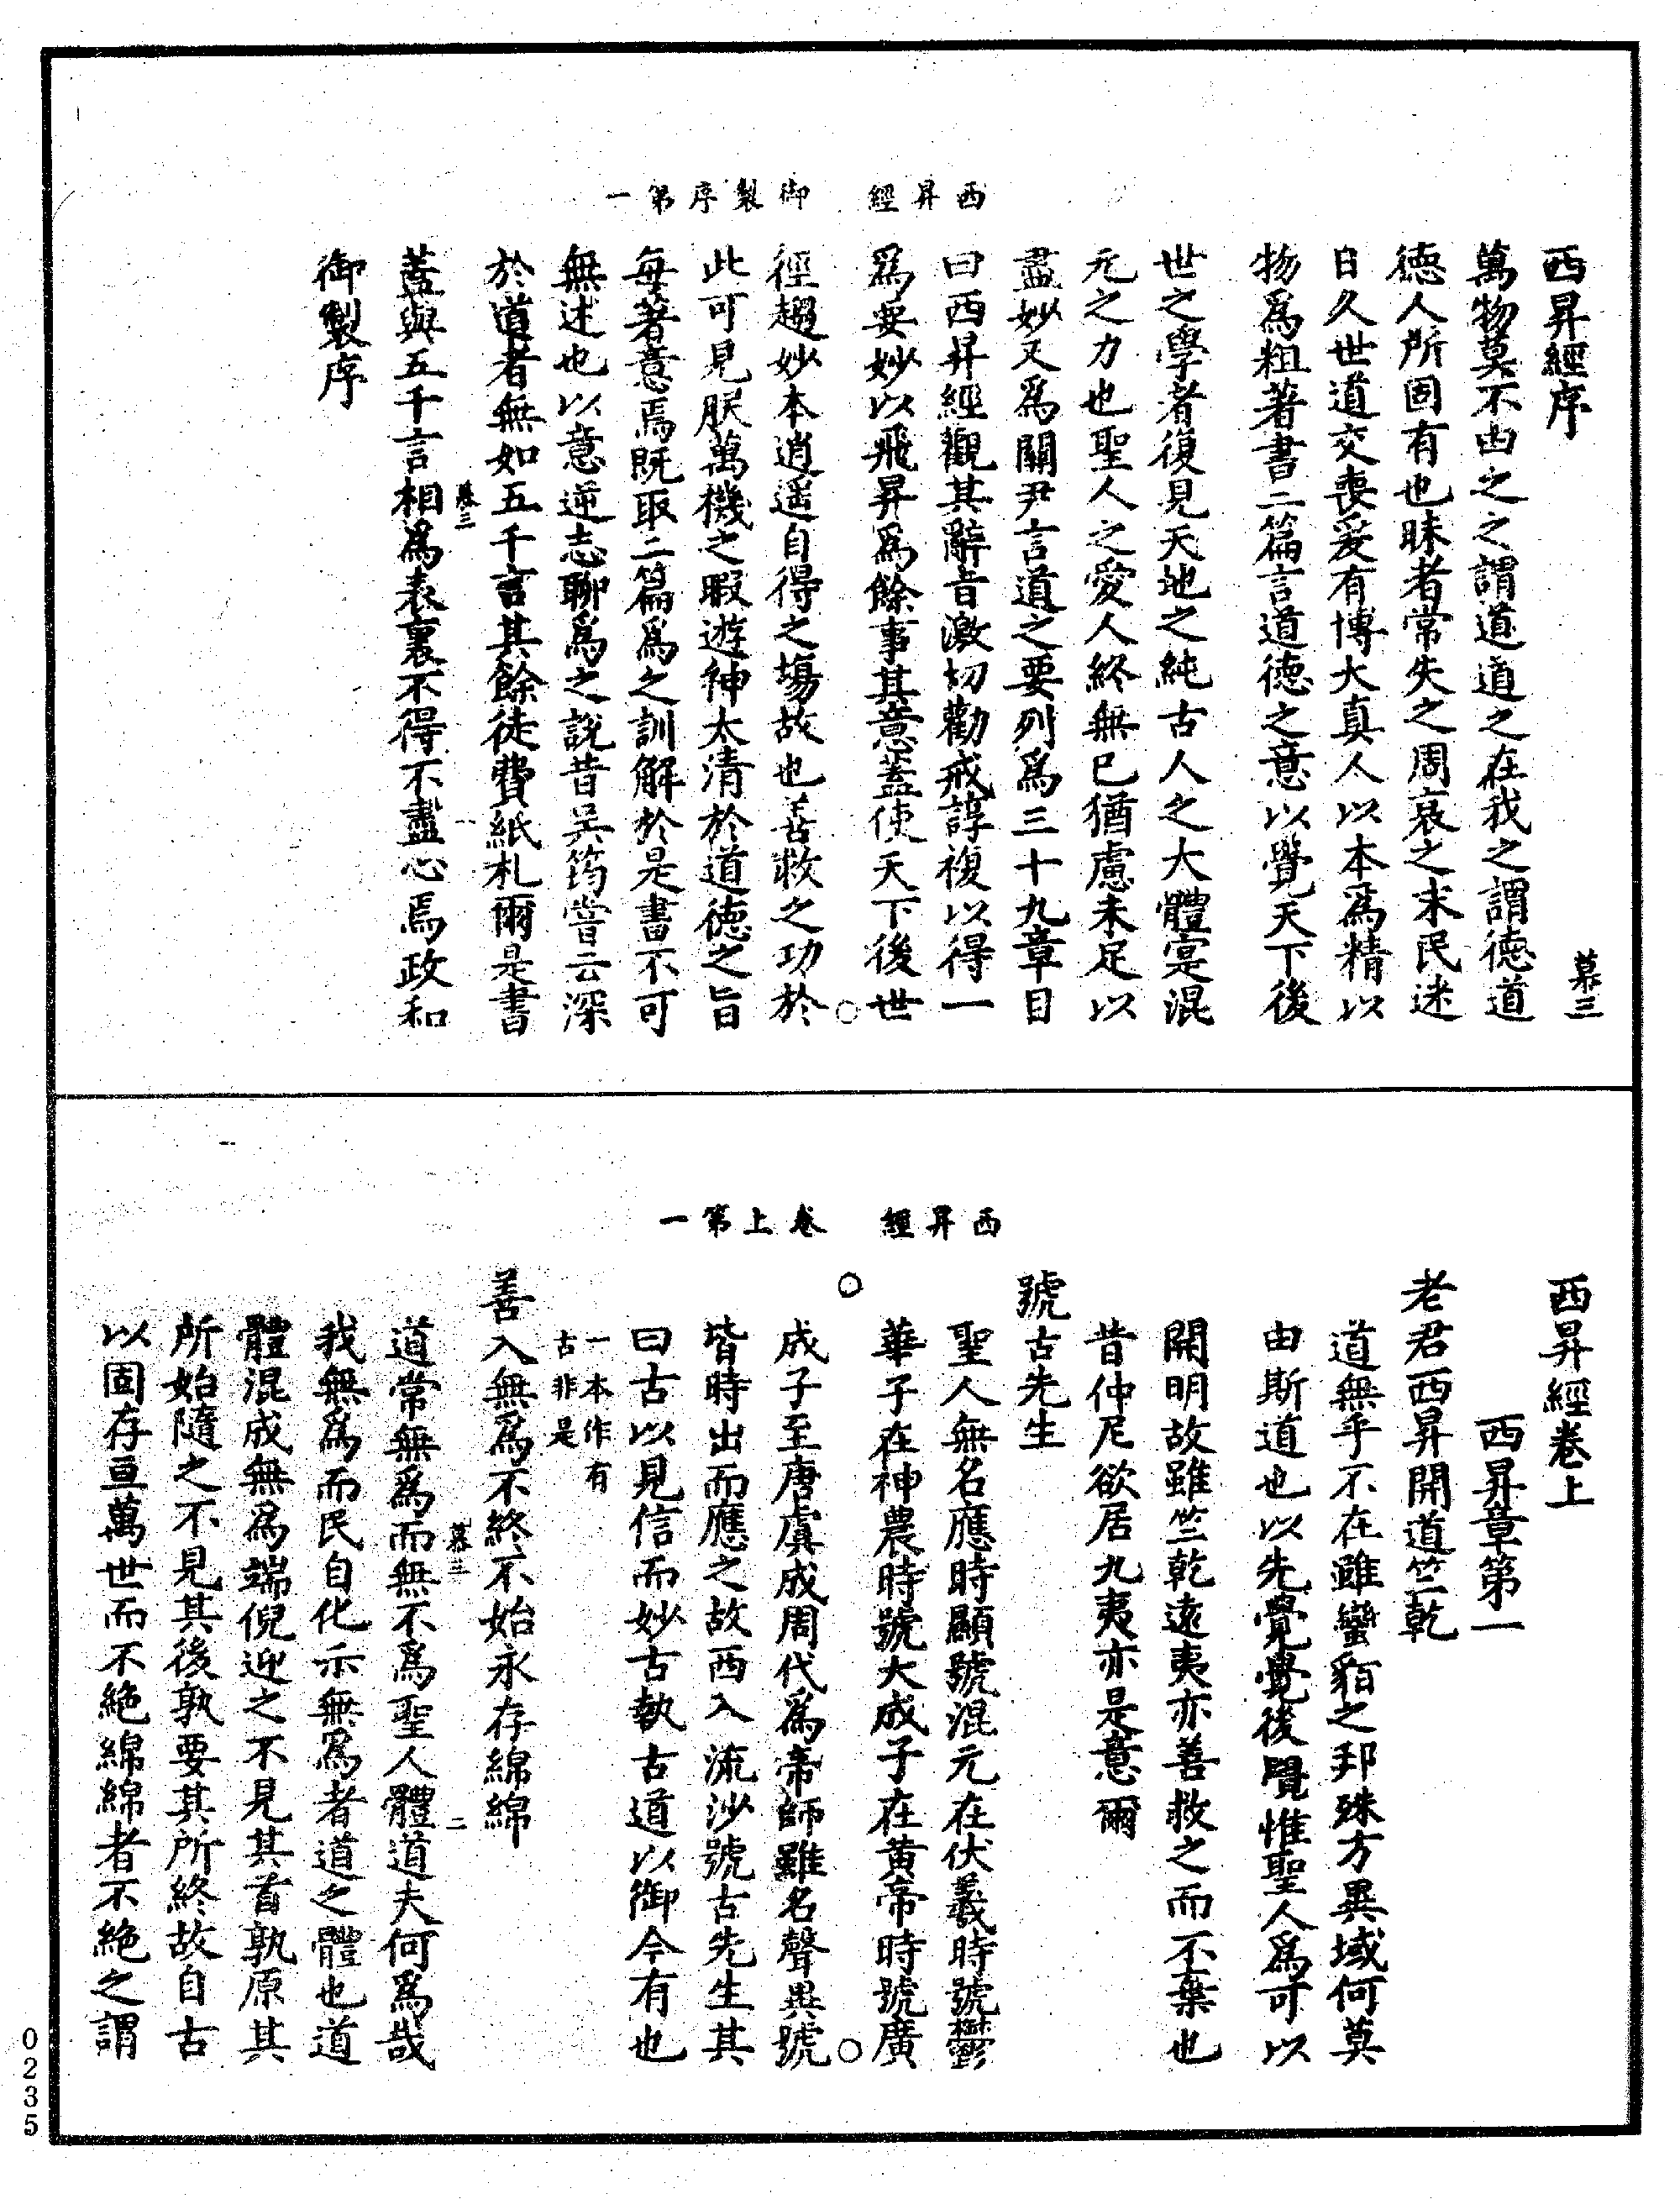 西昇經序
慕三
萬物莫不由之之謂道道之在我之謂德道
德人所固有也昧者常失之周衰之末民迷
日久世道交喪爰有博大真人以本爲精以
物爲粗著書二篇言道德之意以覺天下後
世之學者復見天地之純古人之大體寔混
元之力也聖人之愛人終無已猶慮未足以
盡妙又爲關尹言道之要列爲三十九章目
曰西昇經觀其辭旨激切勸戒諄複以得一
爲要妙以飛昇爲餘事其意蓋使天下後世
西昇經 御製序第一
徑趨妙本逍遥自得之塲故也善救之功於
此可見朕萬機之暇遊神太清於道德之旨
每著意焉既取二篇爲之訓解於是書不可
無述也以意逆志聊爲之說昔吳筠嘗云深
於道者無如五千言其餘徒費紙札爾是書
慕三
蓋與五千言相爲表裏不得不盡心焉政和
御製序
西昇經卷上
西昇章第一
老君西昇開道竺乾
道無乎不在雖蠻貊之邦殊方異域何莫
由斯道也以先覺覺後覺惟聖人爲可以
開明故雖竺乾逺夷亦善救之而不棄也
昔仲尼欲居九夷亦是意爾
號古先生
聖人無名應時顯號混元在伏羲時號鬱
華子在神農時號大成子在黄帝時號廣
西昇經 卷上第一
成子至唐虞成周代爲帝師雖名聲異號
皆時出而應之故西入流沙號古先生其
曰古以見信而妙古執古道以御今有也
一本作有
古非是
善入無爲不終不始永存綿綿
慕三 二
道常無爲而無不爲聖人體道夫何爲哉
我無爲而民自化示無爲者道之體也道
體混成無爲端倪迎之不見其首孰原其
所始隨之不見其後孰要其所終故自古
以固存亘萬世而不絶綿綿者不絶之謂
0235